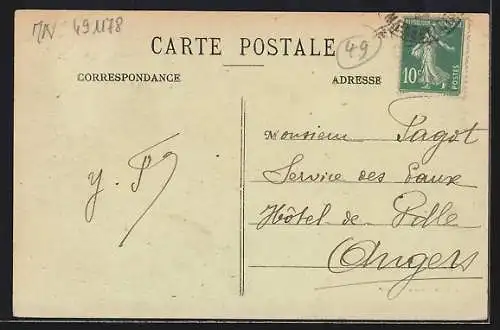 MN 491178
CARTE POSTALE
49
CORRESPONDANCE
ADRESSE
10c
POSTES
Monsieur Pagot
Service des Eaux
Hôtel de Ville
Angers
y. P